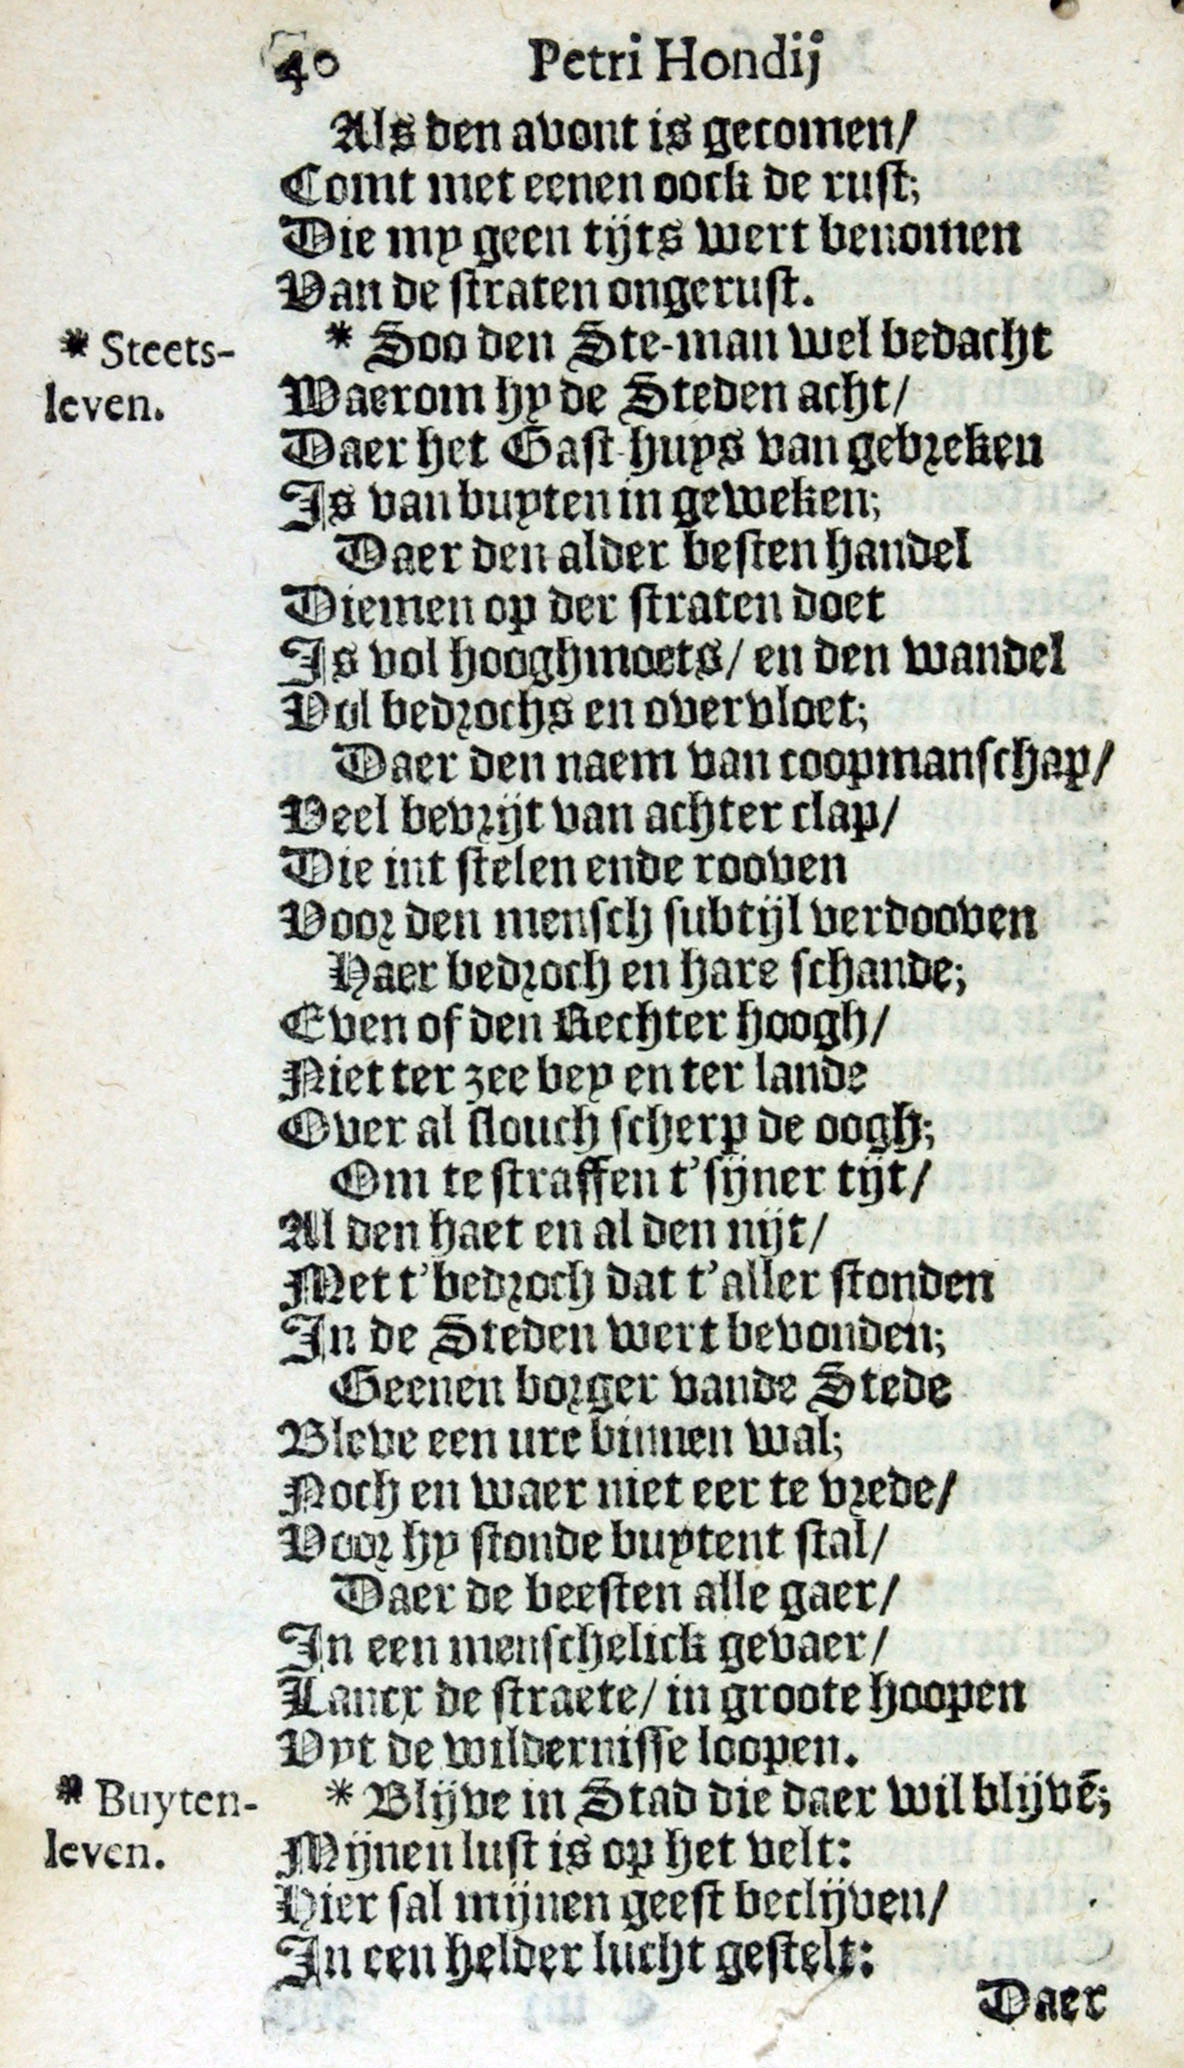 40 Petri Hondij
Als den avont is gecomen/
Comt met eenen oock de rust;
Die my geen tijts wert benomen
Van de straten ongerust.
* Steets-
leven.
* Soo den Ste-man wel bedacht
Waerom hy de Steden acht/
Daer het Gast-huys van gebreken
Is van buyten in geweken;
Daer den alder besten handel
Diemen op der straten doet
Is vol hooghmoets/ en den wandel
Vol bedrochs en overvloet;
Daer den naem van coopmanschap/
Veel bevrijt van achter clap/
Die int stelen ende rooven
Voor den mensch subtijl verdooven
Haer bedroch en hare schande;
Even of den Rechter hoogh/
Niet ter zee bey en ter lande
Over al slouch scherp de oogh;
Om te straffen t'sijner tijt/
Al den haet en al den nijt/
Met t'bedroch dat t'aller stonden
In de Steden wert bevonden;
Geenen borger vande Stede
Bleve een ure binnen wal;
Noch en waer niet eer te vrede/
Voor hy stonde buytent stal/
Daer de beesten alle gaer/
In een menschelick gevaer/
Lancx de straete/ in groote hoopen
Vyt de wildernisse loopen.
* Buyten-
leven.
* Blijve in Stad die daer wil blijvē;
Mijnen lust is op het velt:
Hier sal mijnen geest beclijven/
In een helder lucht gestelt:
Daer